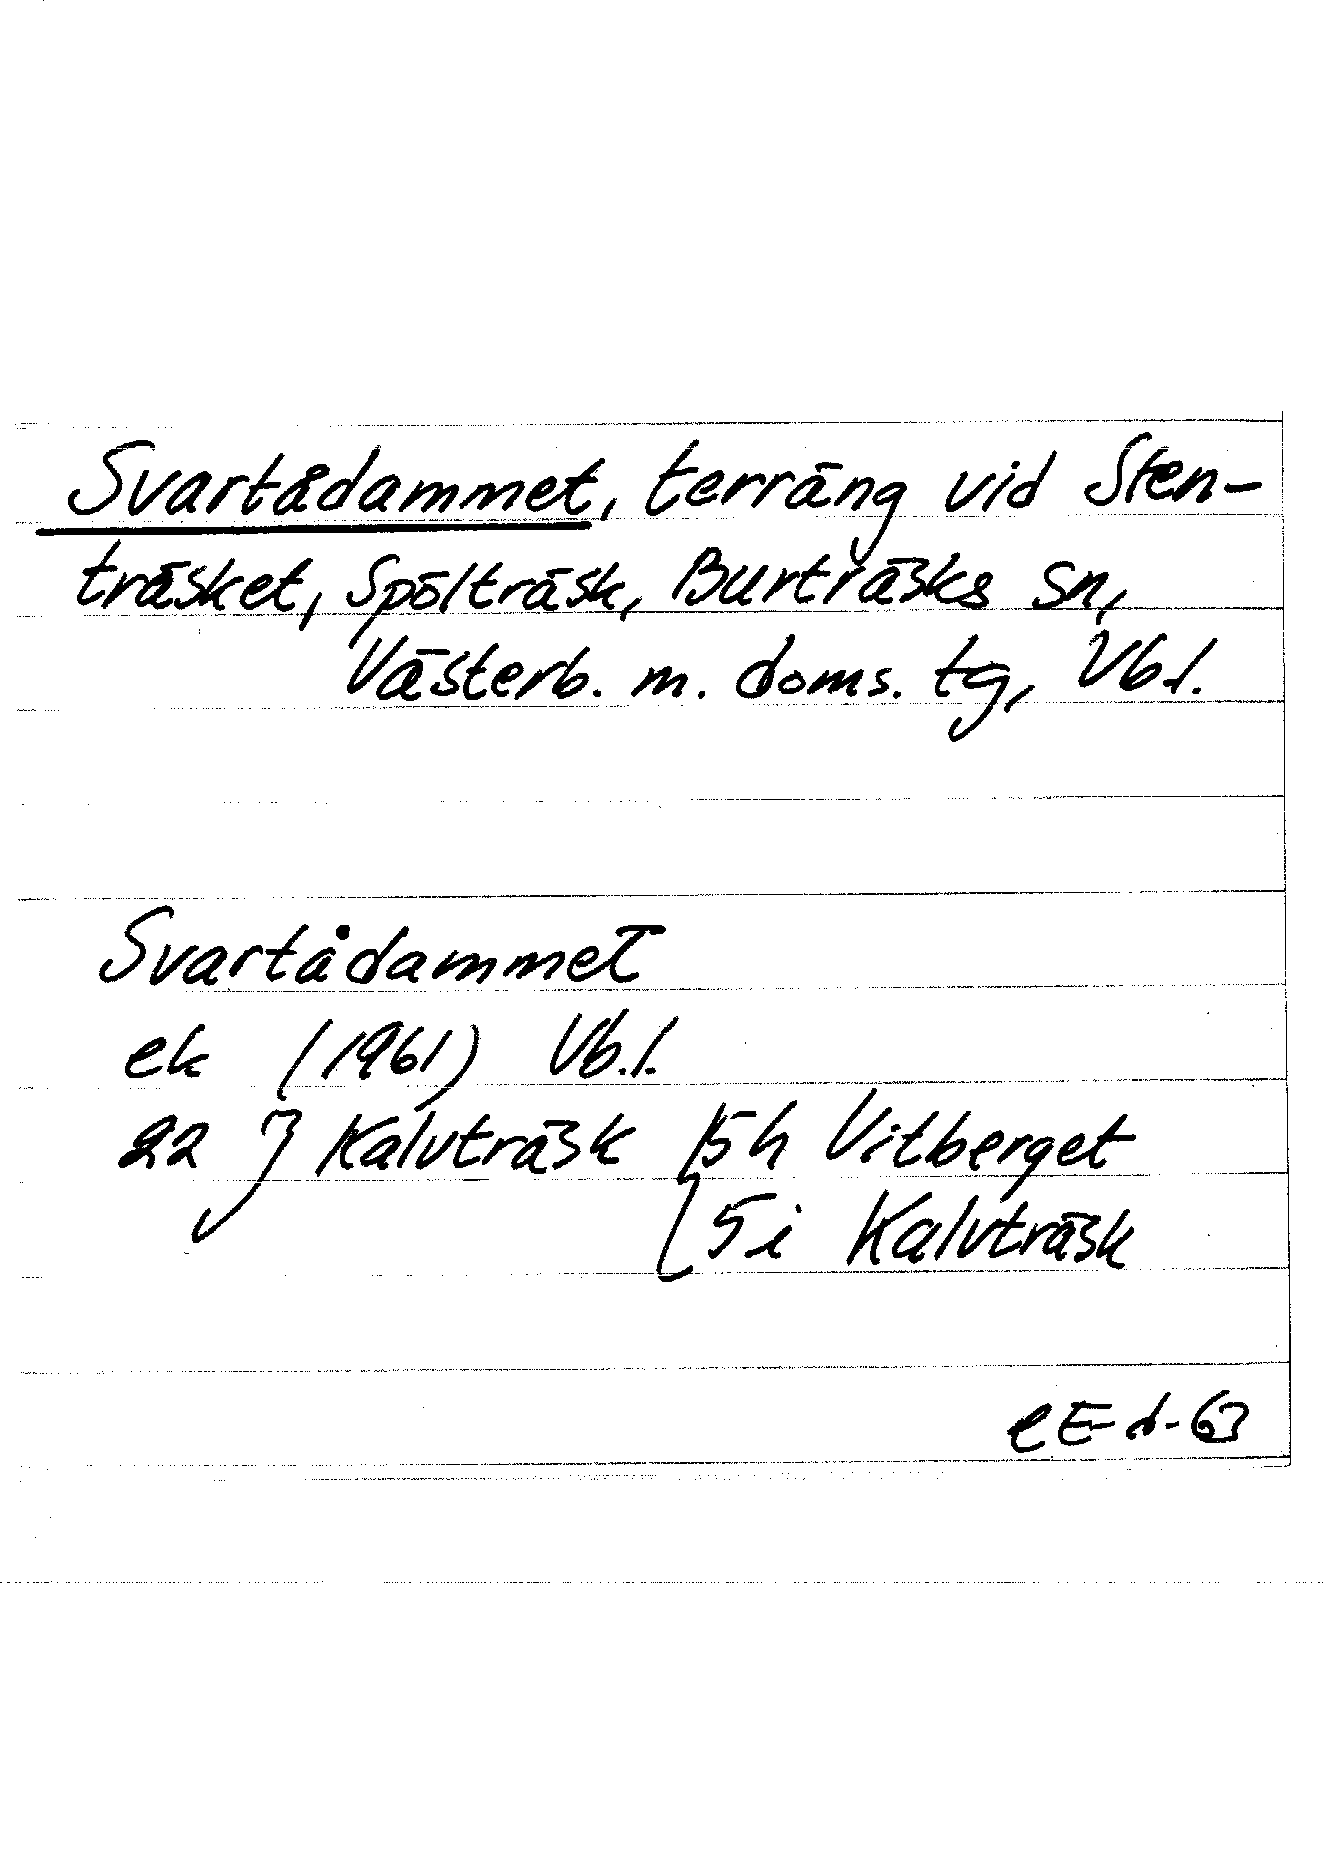 Svartådammet, terräng vid Sten-
träsket, Spölträsk, Burträsks sn,
Västerb. m. doms. tg, Vb.l.
Svartådammet
ek (1961) Vb.l.
22 J Kalvträsk 5h Vitberget
5i Kalvträsk
eE-d-63